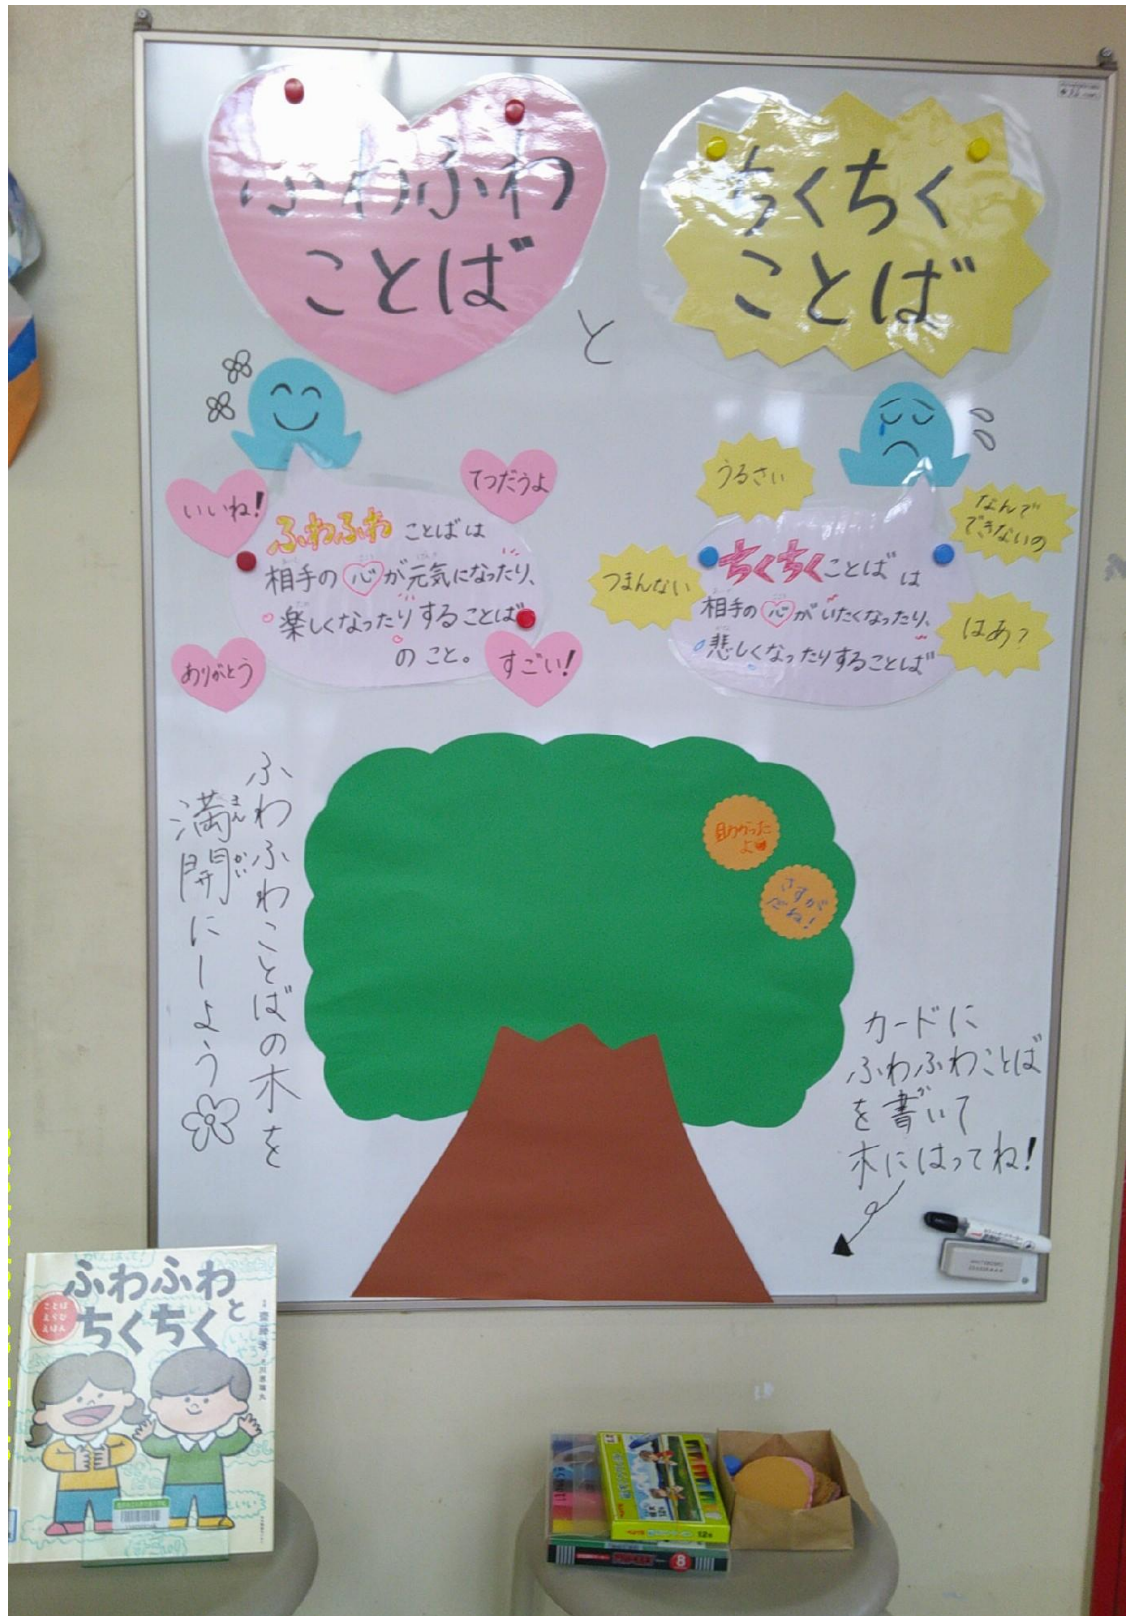 ふわふわ
ことば
と
ちくちく
ことば
いいね!
てつだうよ
ふわふわ ことばは
相手の心が元気になったり、
楽しくなったりすることば
のこと。
ありがとう
すごい!
うるさい
なんで
できないの
つまんない
ちくちくことばは
相手の心がいたくなったり、
悲しくなったりすることば
はあ?
ふわふわことばの木を
満開にしよう
まんかい
助かった
よ
さすが
だね!
カードに
ふわふわことば
を書いて
木にはってね!
ふわふわ
と
ちくちく
ことば
えらび
えほん
12色
8